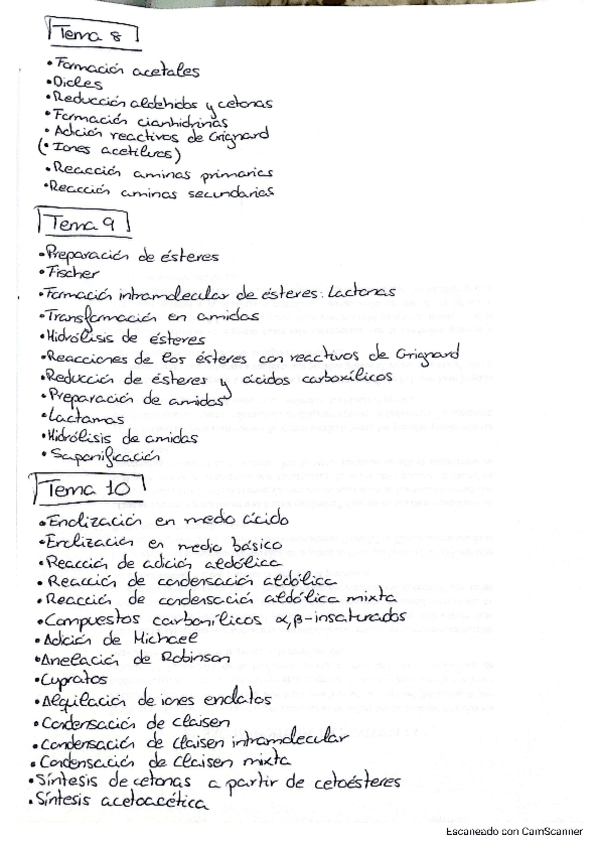 Tema 8
• Formación acetales
• Dioles
• Reducción aldehidos y cetonas
• Formación cianhidrinas
• Adición reactivos de Grignard
(• Iones acetiluros)
• Reacción aminas primarias
• Reacción aminas secundarias
Tema 9
• Preparación de ésteres
• Fischer
• Formación intramolecular de ésteres: Lactonas
• Transformación en amidas
• Hidrólisis de ésteres
• Reacciones de los ésteres con reactivos de Grignard
• Reducción de ésteres y ácidos carboxílicos
• Preparación de amidas
• Lactamas
• Hidrólisis de amidas
• Saponificación
Tema 10
• Enolización en medio ácido
• Enolización en medio básico
• Reacción de adición aldólica
• Reacción de condensación aldólica
• Reacción de condensación aldólica mixta
• Compuestos carbonílicos α,β-insaturados
• Adición de Michael
• Anelación de Robinson
• Cupratos
• Alquilación de iones enolatos
• Condensación de claisen
• Condensación de claisen intramolecular
• Condensación de claisen mixta
• Síntesis de cetonas a partir de cetoésteres
• Síntesis acetoacética
Escaneado con CamScanner